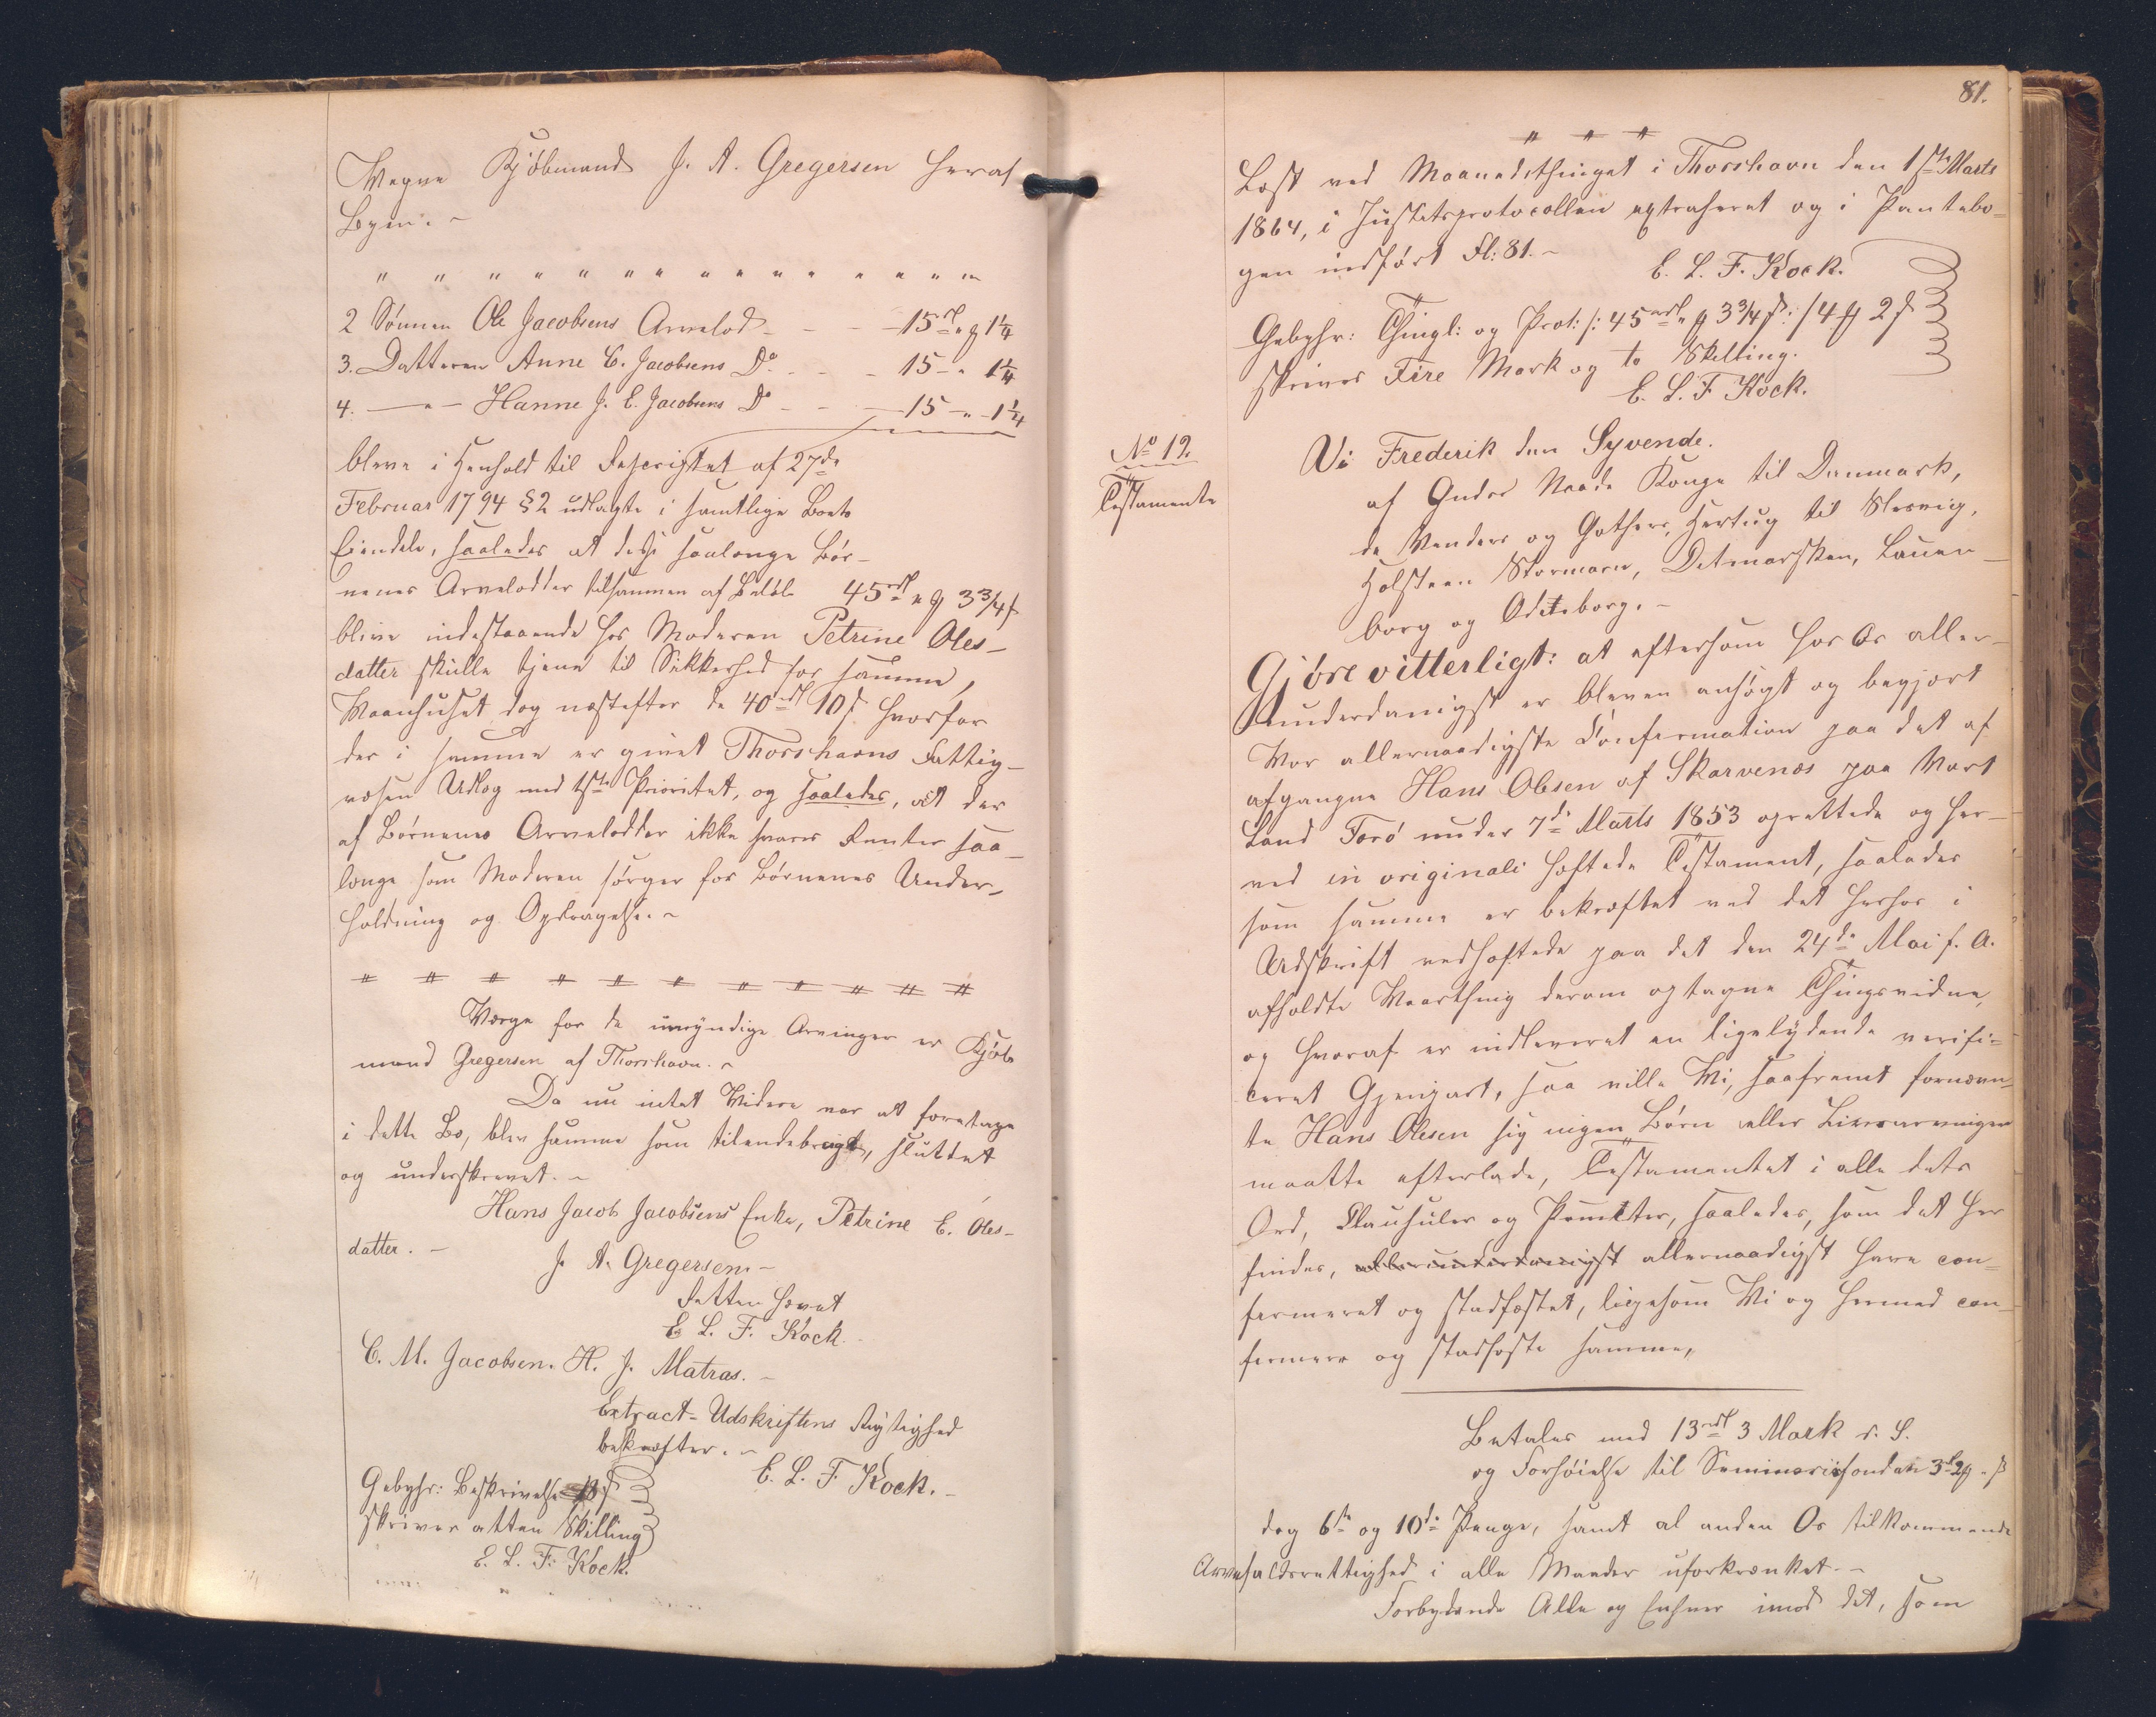 Vegne Kjöbmand J. A. Gregersen heraf
Byen. -
" " " " " " " " " " " " " " " "
2 Sönnen Ole Jacobsens Arvelod - - - 15 rd " ß 1¼
3. Datteren Anne C. Jacobsens Do. - - - 15 - " 1¼
4. — " — Hanne J. E. Jacobsens Do - - - 15 - " - 1¼
bleve i Henhold til Rescriptet af 27de
Februar 1794 § 2 udlagte i samtlige Boets
Eiendele, saaledes at disse saalænge Bör-
nenes Arvelodder tilsammen af Beløb 45 rd " ß 3¾ s
blive indestaaende hos Moderen Petrine Oles-
datter skulle tjene til Sikkerhed for samme,
Vaanhuset dog næstefter de 40 rd 10 s hvorfor
der i samme er givet Thorshavns Fattig-
væsen Udlæg med 1ste Prioritet, og saaledes, at der
af Börnenes Arvelodder ikke svares Renter saa-
længe som Moderen sörger for Börnenes Under-
holdning og Opdragelse. -
" " " " " " " " " " "
Værge for de umyndige Arvinger er Kjöb-
mand Gregersen af Thorshavn. -
Da nu intet Videre var at foretage
i dette Bo, blev samme som tilendebragt, sluttet
og underskrevet. -
Hans Jacob Jacobsens Enke, Petrine E. Oles-
datter. -
J. A. Gregersen. -
Retten hævet
E. L. F. Kock.
C. M. Jacobsen. H. J. Matras. -
Extract-Udskriftens Rigtighed
bekræfter. -
E. L. F. Kock. -
Gebyhr: Beskrivelse 18 s
skriver atten Skilling
E. L. F. Kock.
81.
" " "
Læst ved Maanedsthinget i Thorshavn den 1ste Marts
1864, i Justitsprotocollen extraheret og i Pantebo-
gen indfört Fl: 81. -
E. L. F. Kock.
Gebyhr: Thingl: og Prot: /: 45 rd " ß 3¾ s :/ 4 ß 2 s
skriver Fire Mark og to Skilling.
E. L. F. Kock.
No 12.
Testamente
Vi Frederik den Syvende.
af Guds Naade Konge til Danmark,
de Venders og Gothers, Hertug til Slesvig,
Holsteen Stormarn, Ditmarsken, Lauen-
borg og Oldenborg. -
Gjöre vitterligt: at eftersom hos Os aller-
underdanigst er bleven ansögt og begjært
Vor allernaadigste Confirmation paa det af
afgangne Hans Olesen af Skarvenæs paa Vort
Land Færö under 7de Marts 1853 oprettede og her-
ved in originali hæftede Testament, saaledes
som samme er bekræftet ved det herhos i
Udskrift vedhæftede paa det den 24de Mai f. A.
afholdte Vaarthing derom optagne Thingsvidne,
og hvoraf er indleveret en ligelydende verifi-
ceret Gjenpart, saa ville Vi, saafremt fornævn-
te Hans Olesen sig ingen Börn eller Livsarvinger
maatte efterlade, Testamentet i alle dets
Ord, Clausuler og Puncter, saaledes, som det her
findes, allerunderdanigst allernaadigst have con-
firmeret og stadfæstet, ligesom Vi og hermed con-
firmere og stadfæste samme,
Betales med 13 rd 3 Mark r. S.
og Forhöielse til Seminariefonden 3 rd 2 ß " s
dog 6te og 10de Penge, samt al anden Os tilkommende
Arvefaldsrettighed i alle Maader uforkrænket. -
Forbydende Alle og Enhver imod det, som